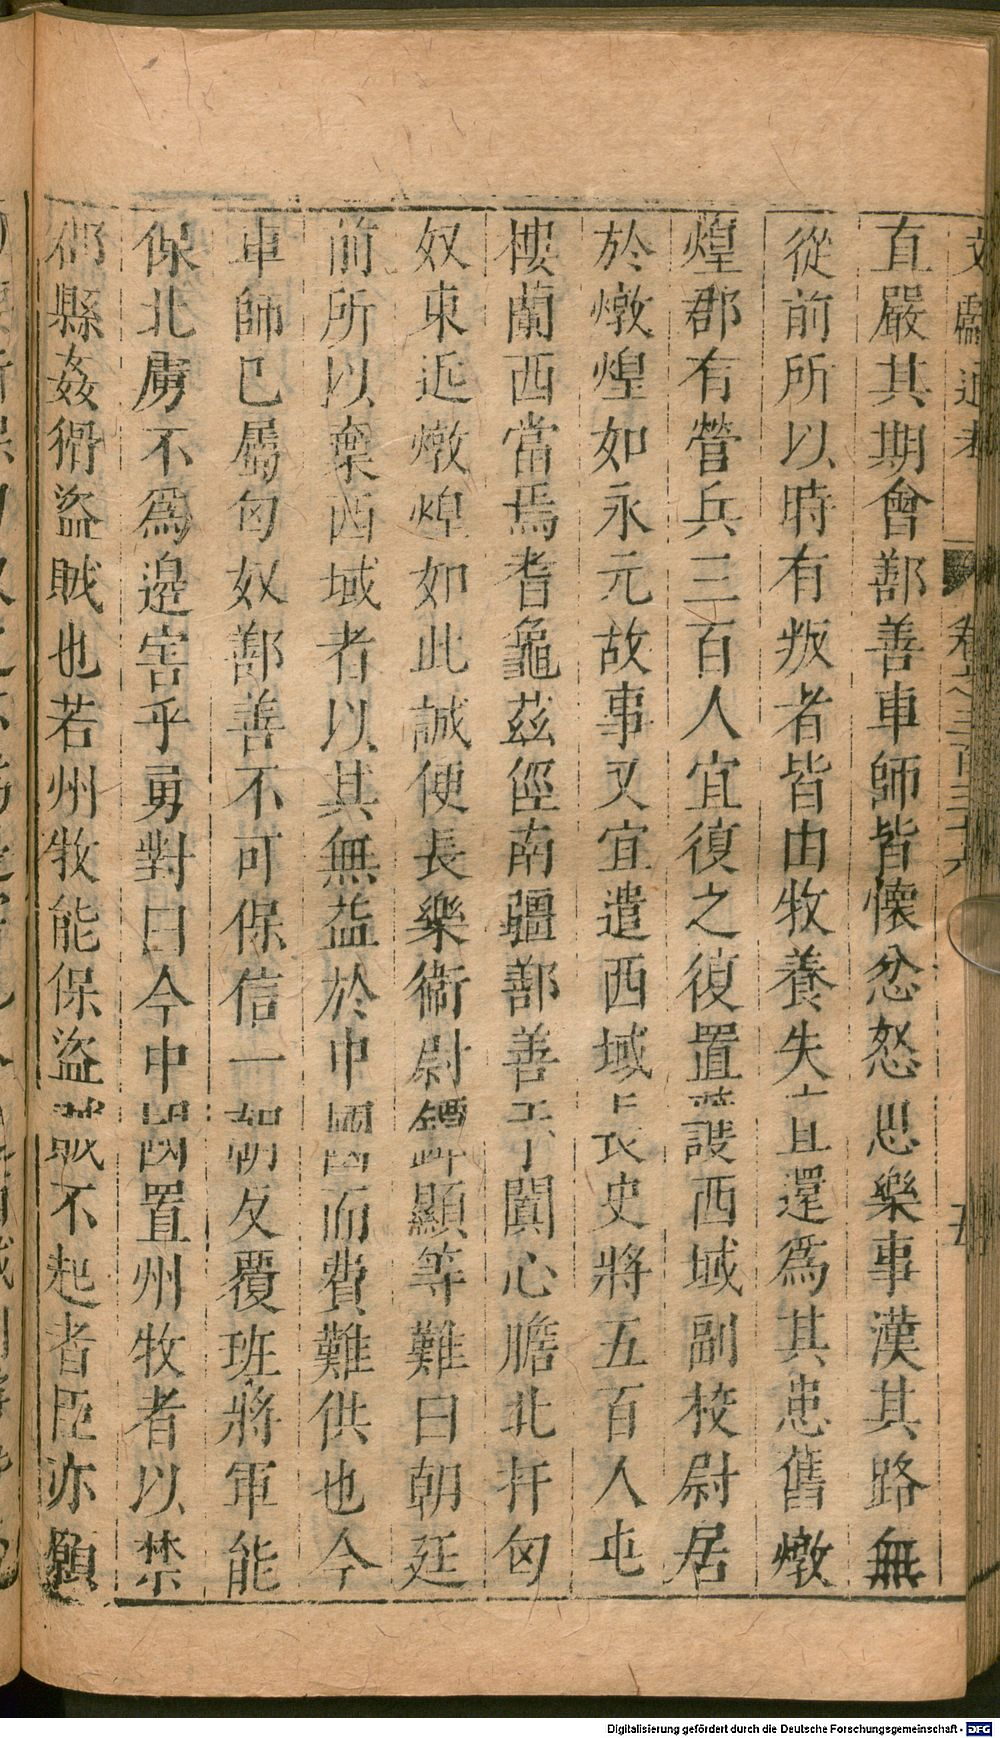 文獻通考 卷之三百三十六 五
直嚴其期會鄯善車師皆懷忿怒思樂事漢其路無
從前所以時有叛者皆由牧養失宜還爲其患舊燉
煌郡有營兵三百人宜復之復置護西域副校尉居
於燉煌如永元故事又宜遣西域長史將五百人屯
樓蘭西當焉耆龜茲徑南疆鄯善于闐心膽北扞匈
奴東近燉煌如此誠便長樂衞尉鐔顯等難曰朝廷
前所以棄西域者以其無益於中國而費難供也今
車師已屬匈奴鄯善不可保信一朝反覆班將軍能
保北虜不爲邊害乎勇對曰今中國置州牧者以禁
郡縣姦猾盜賊也若州牧能保盜賊不起者臣亦願
Digitalisierung gefördert durch die Deutsche Forschungsgemeinschaft - DFG